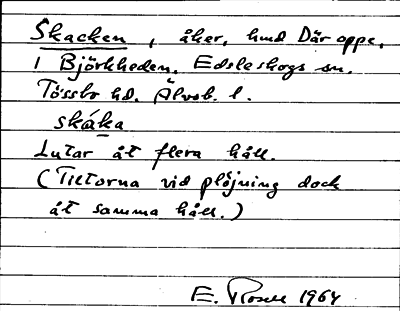 Skacken, åker, hmd Där oppe,
1 Björkheden. Edsleskogs sn.
Tössbo hd. Älvsb. l.
skáka
Lutar åt flera håll.
(Tiltorna vid plöjning dock
åt samma håll.)
E. Rosell 1964